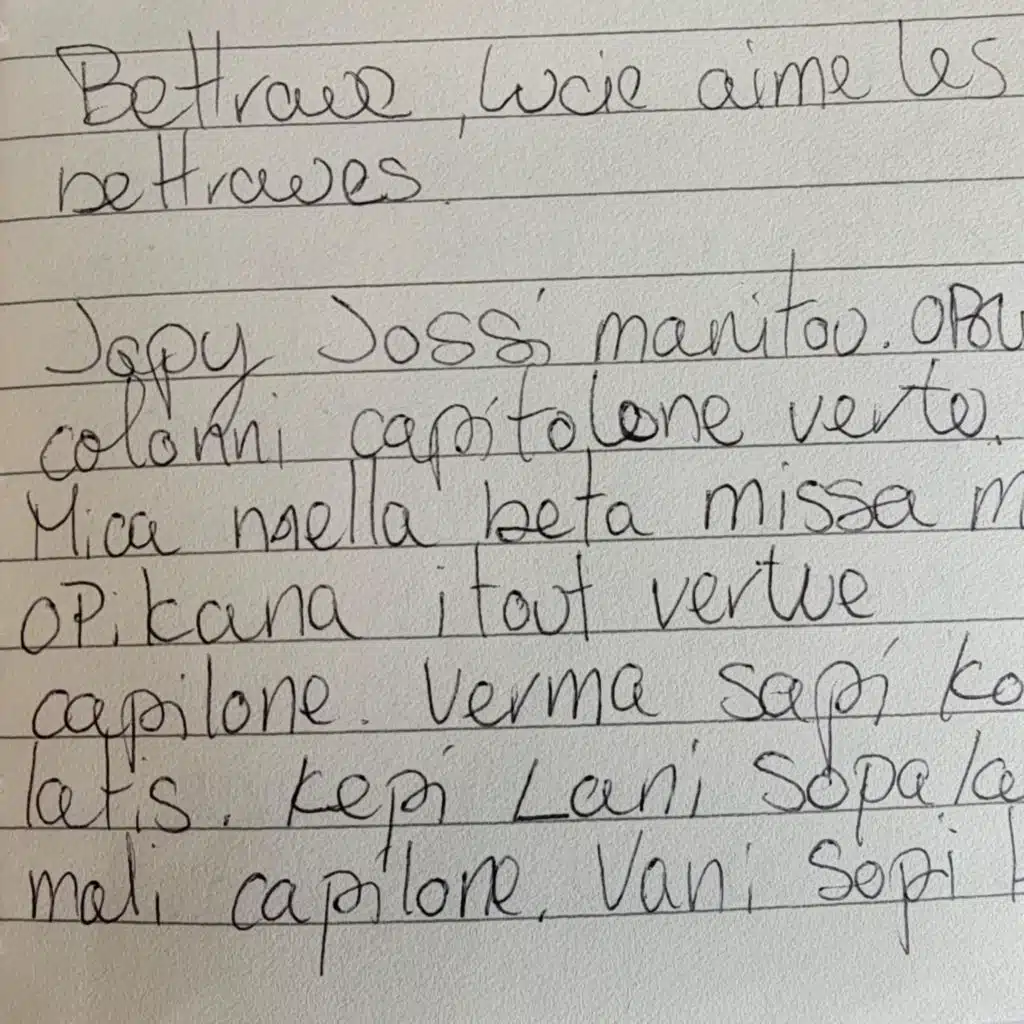 Bettrave, Lucie aime les
bettraves.
Japy Jossi manitou.
colonni capitolone verto.
Mica naella beta missa
opikana itout vertue
capilone. Verma sapi
latis. Kepi Lani sopa
mali capilone. Vani sopi